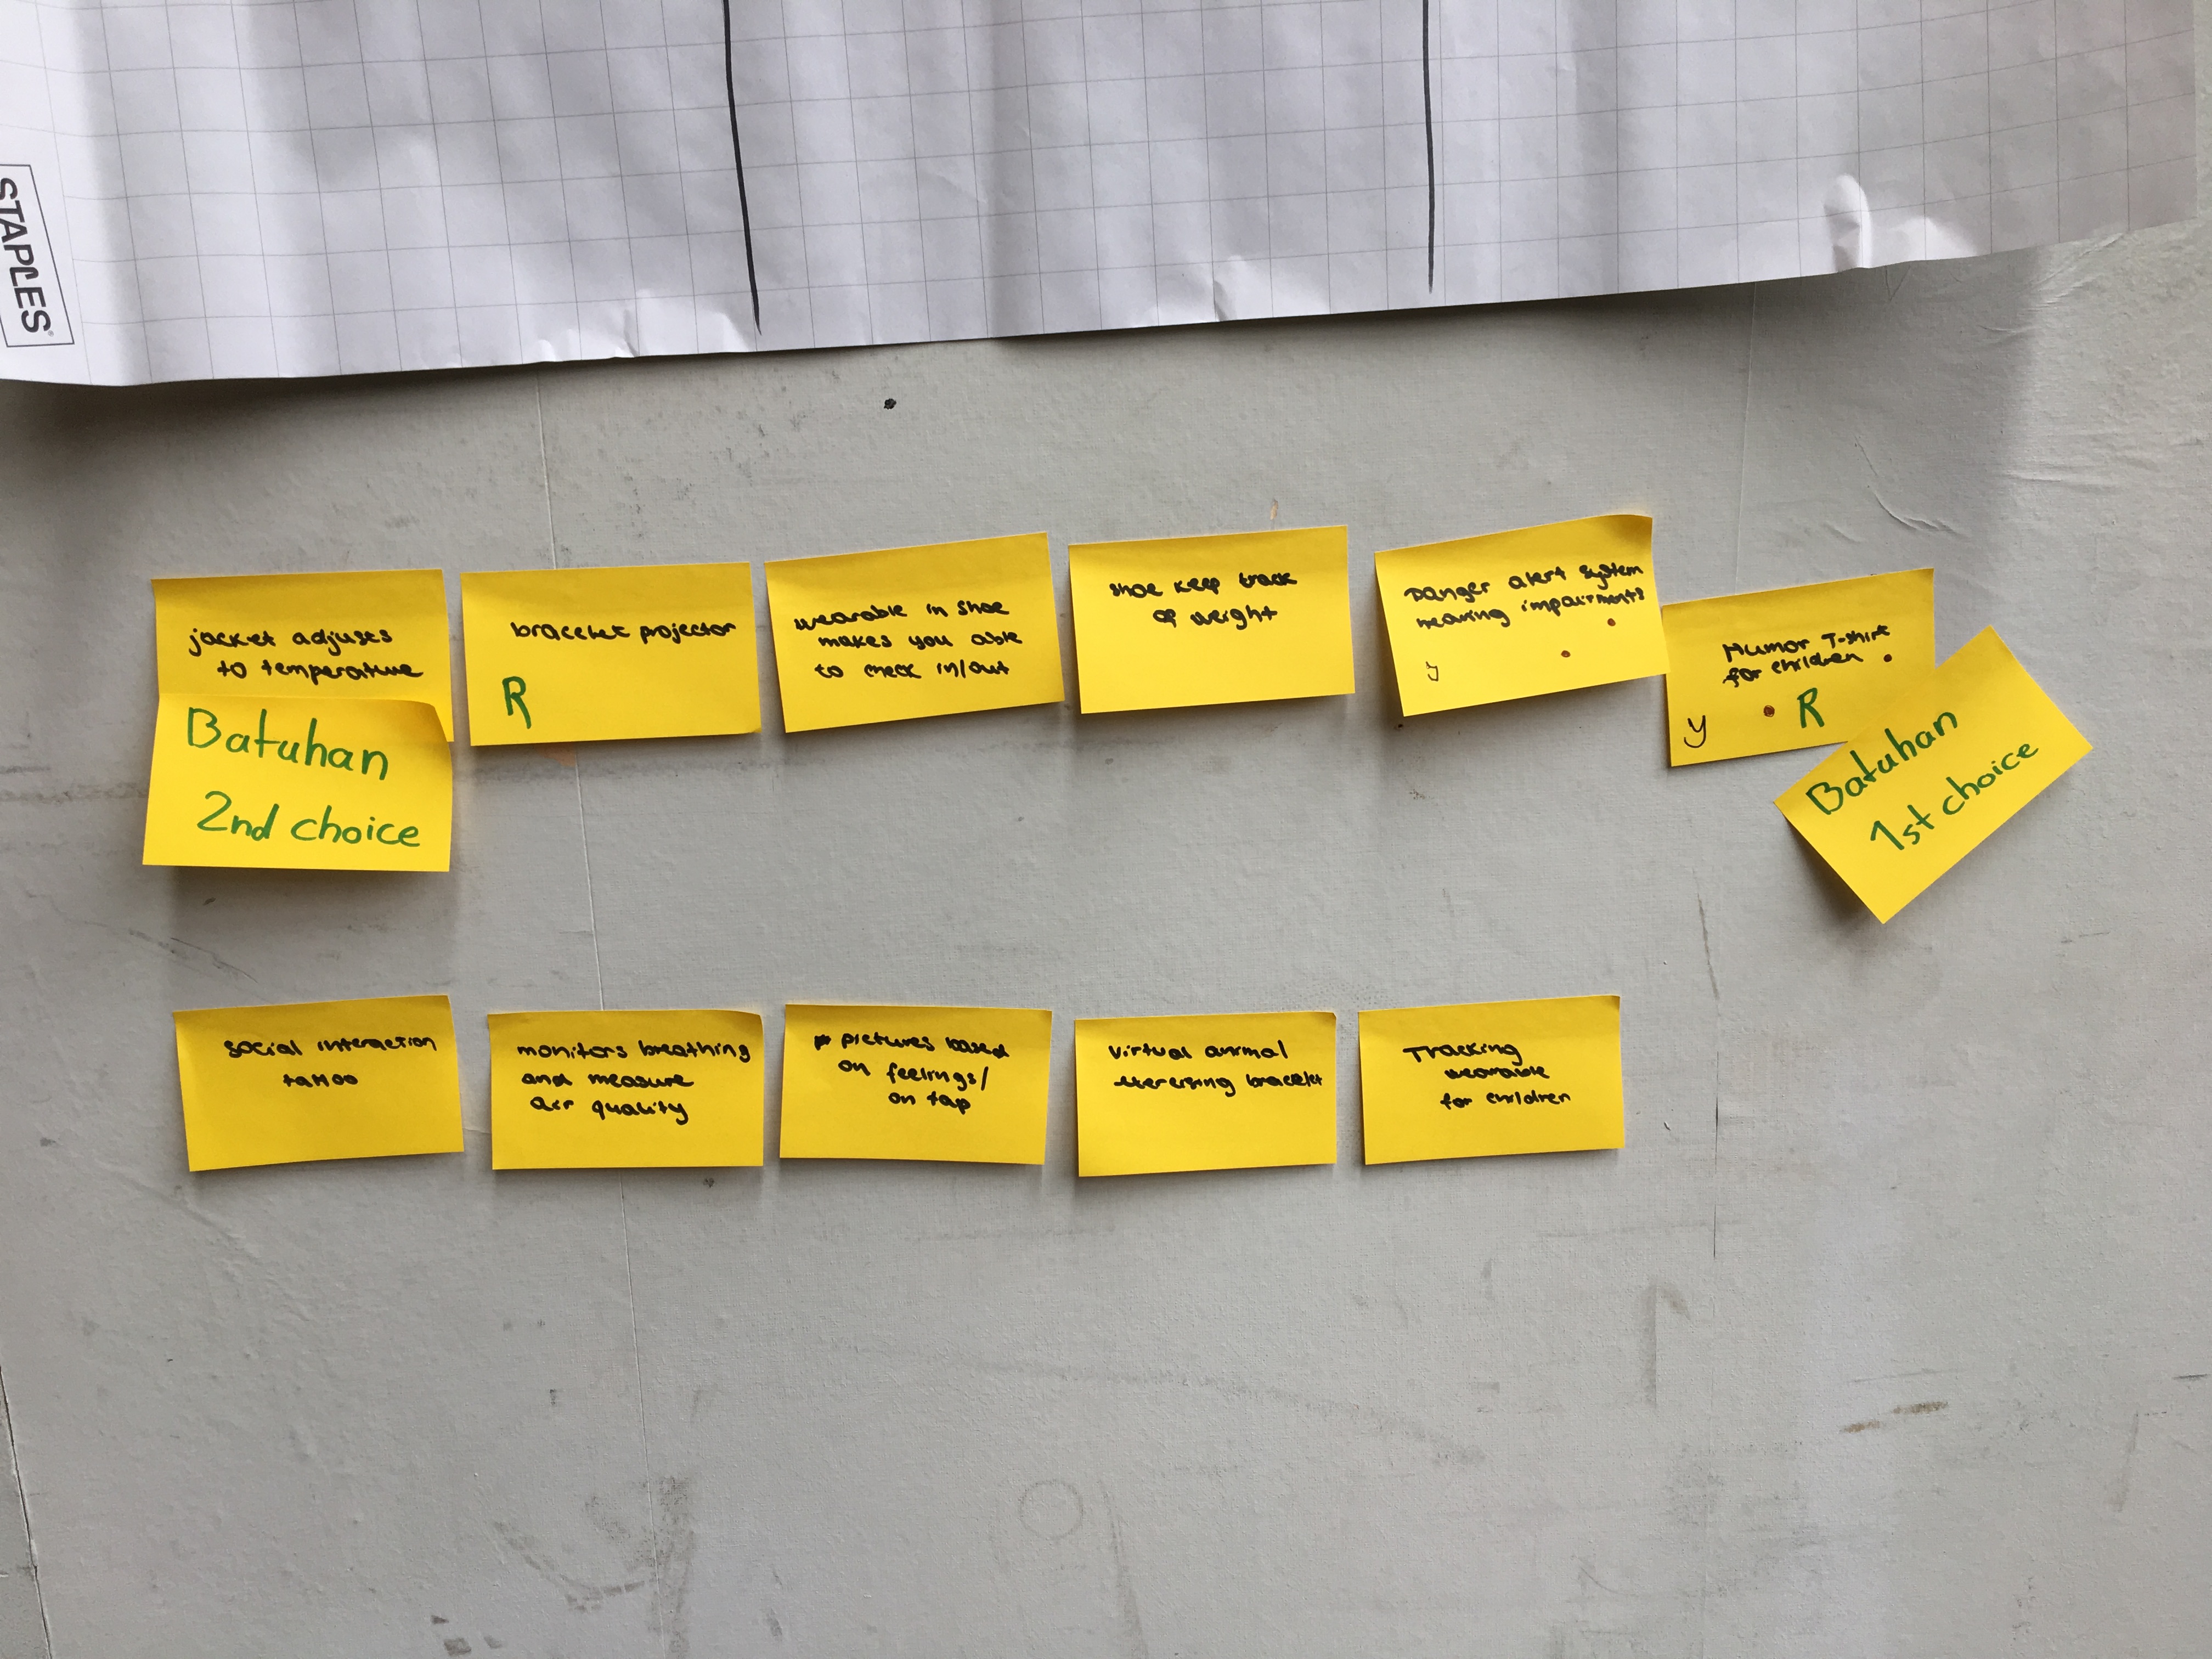 STAPLES
jacket adjusts
to temperature
Batuhan
2nd choice
bracelet projector
R
wearable in shoe
makes you able
to check in/out
shoe keep track
of weight
Danger alert system
hearing impairments
y
Humor T-shirt
for children
y R
Batuhan
1st choice
social interaction
tattoo
monitors breathing
and measure
air quality
pictures based
on feelings/
on tap
virtual animal
bracelet
Tracking
wearable
for children